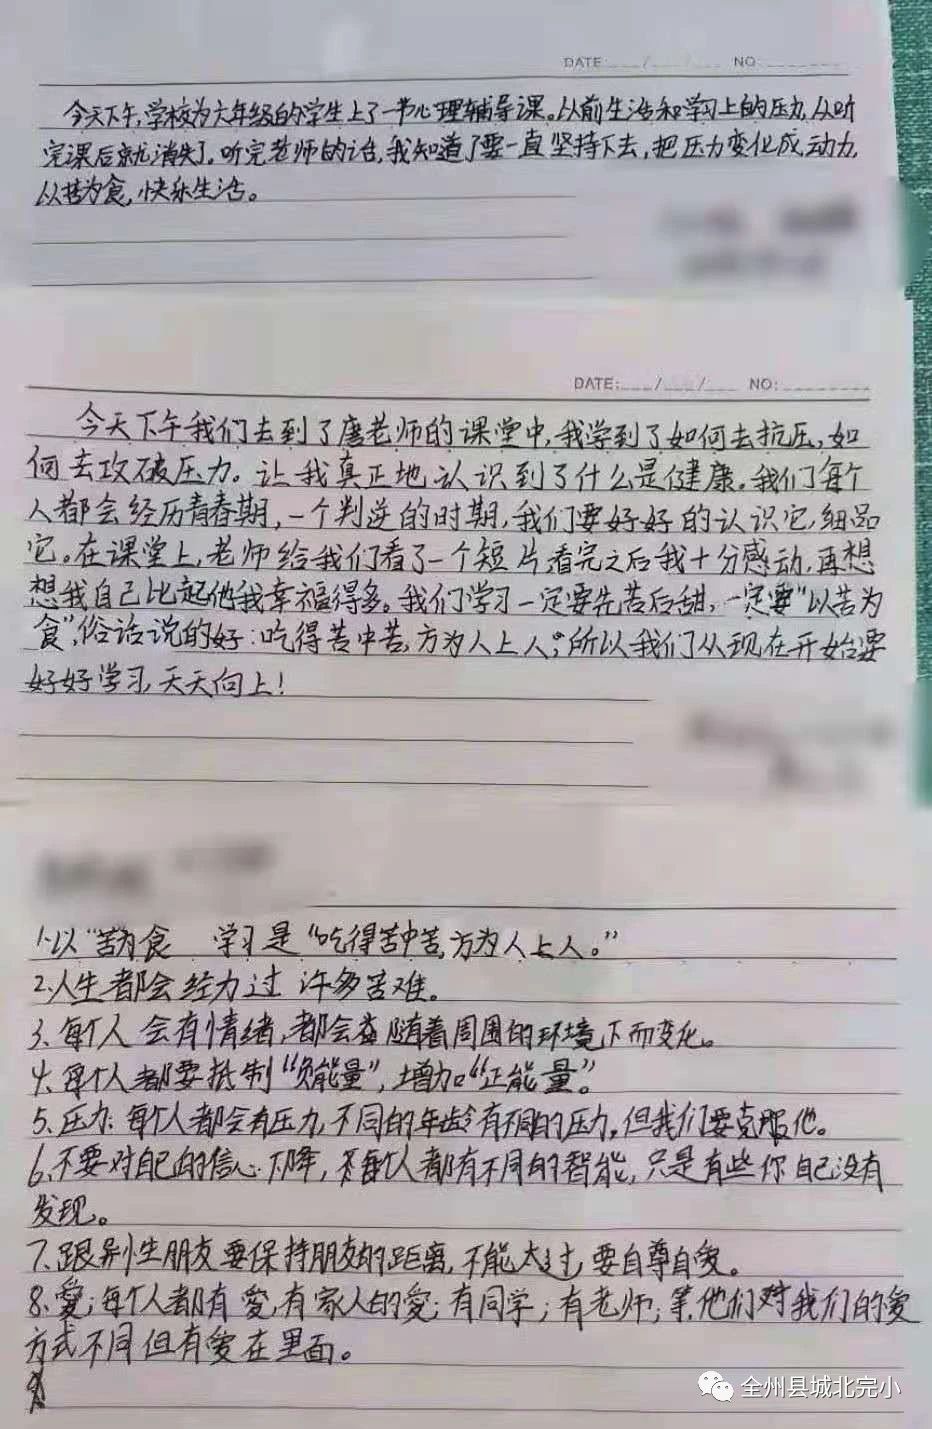 DATE ___/___/___ NO ________
今天下午,学校为六年级的学生上了一节心理辅导课。从前生活和学习上的压力,从听
完课后就消失了。听完老师的话,我知道了要一直坚持下去,把压力变化成动力,
以苦为食,快乐生活。
DATE:___/___/___ NO:________
今天下午我们去到了唐老师的课堂中,我学到了如何去抗压,如
何去攻破压力。让我真正地认识到了什么是健康。我们每个
人都会经历青春期,一个判逆的时期,我们要好好的认识它,细品
它。在课堂上,老师给我们看了一个短片看完之后我十分感动,再想
想我自己比起他我幸福得多。我们学习一定要先苦后甜,一定要"以苦为
食",俗话说的好:吃得苦中苦,方为人上人。所以我们从现在开始要
好好学习,天天向上!
1.以"苦为食 学习是"吃得苦中苦,方为人上人。"
2.人生都会经力过许多苦难。
3.每个人会有情绪,都会随着周围的环境下而变化。
4.每个人都要抵制"负能量",增加"正能量"。
5.压力:每个人都会有压力,不同的年龄有不同的压力,但我们要克服他。
6.不要对自己的信心下降,每个人都有不同的智能,只是有些你自己没有
发现。
7.跟异性朋友要保持朋友的距离,不能太过,要自尊自爱。
8.爱;每个人都有爱,有家人的爱;有同学;有老师;等,他们对我们的爱
方式不同但有爱在里面。
全州县城北完小